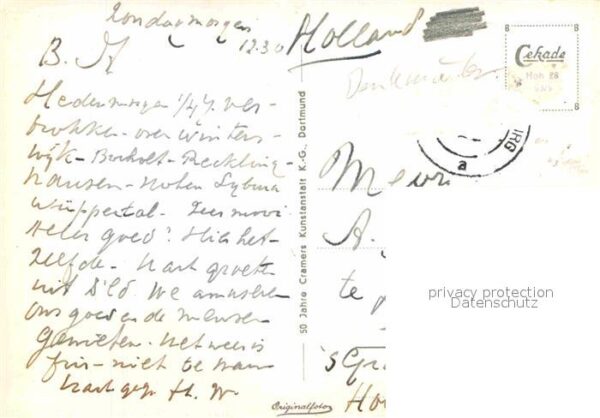 Zondagmorgen
12.30
B. H
Hedenmorgen 1/4 7. ver-
trokken over Winters-
wijk - Bocholt - Reckling-
hausen - Hohen Syburg
Wuppertal. Zeer mooi
goed? Hier het-
zelfde. Hart. groeten
uit We amuseren
ons goed en de mensen
genieten. Het weer is
fijn - niet te warm
Hart. gegr. H. W.
Holland
Denkmäler
Cekade
Hoh 28
BURG
a
50 Jahre Cramers Kunstanstalt K.-G., Dortmund
Mevr
A.
te
's Gr
Ho
privacy protection
Datenschutz
Originalfoto